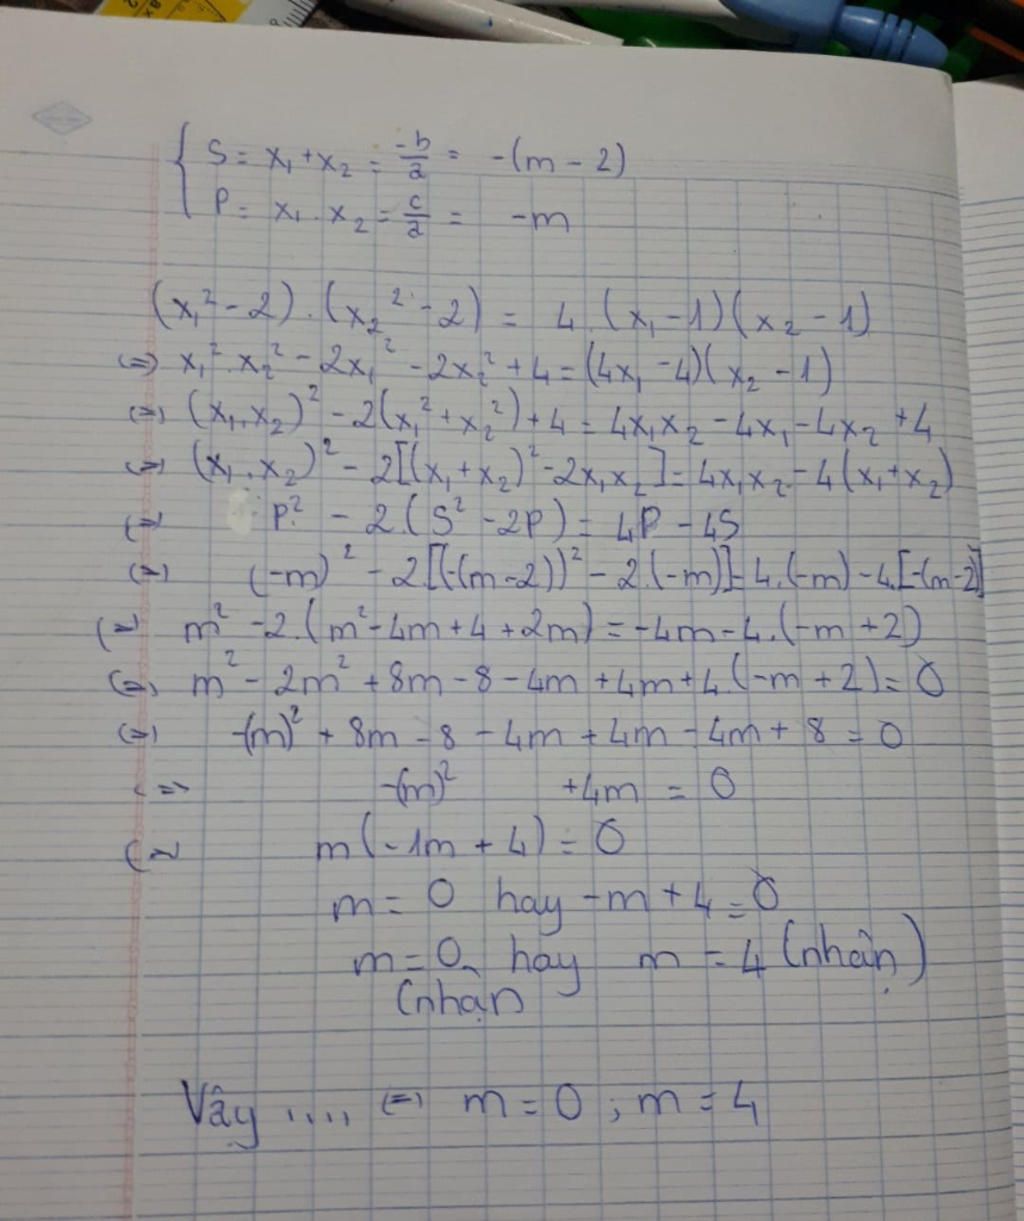 S = x₁ + x₂ = -b/a = -(m - 2)
P = x₁ . x₂ = c/a = -m
(x₁² - 2) . (x₂² - 2) = 4 . (x₁ - 1)(x₂ - 1)
(=) x₁² . x₂² - 2x₁² - 2x₂² + 4 = (4x₁ - 4)(x₂ - 1)
(=) (x₁.x₂)² - 2(x₁² + x₂²) + 4 = 4x₁x₂ - 4x₁ - 4x₂ + 4
(=) (x₁.x₂)² - 2[(x₁ + x₂)² - 2x₁x₂] = 4x₁x₂ - 4(x₁ + x₂)
(=) P² - 2.(S² - 2P) = 4P - 4S
(=) (-m)² - 2[(-(m-2))² - 2.(-m)] = 4.(-m) - 4.[-(m-2)]
(=) m² - 2.(m² - 4m + 4 + 2m) = -4m - 4.(-m + 2)
(=) m² - 2m² + 8m - 8 - 4m + 4m + 4.(-m + 2) = 0
(=) -(m)² + 8m - 8 - 4m + 4m - 4m + 8 = 0
(=) -(m)² + 4m = 0
(=) m(-1m + 4) = 0
m = 0 hay -m + 4 = 0
m = 0 hay m = 4 (nhận)
(nhận
Vậy ..... (=) m = 0 ; m = 4